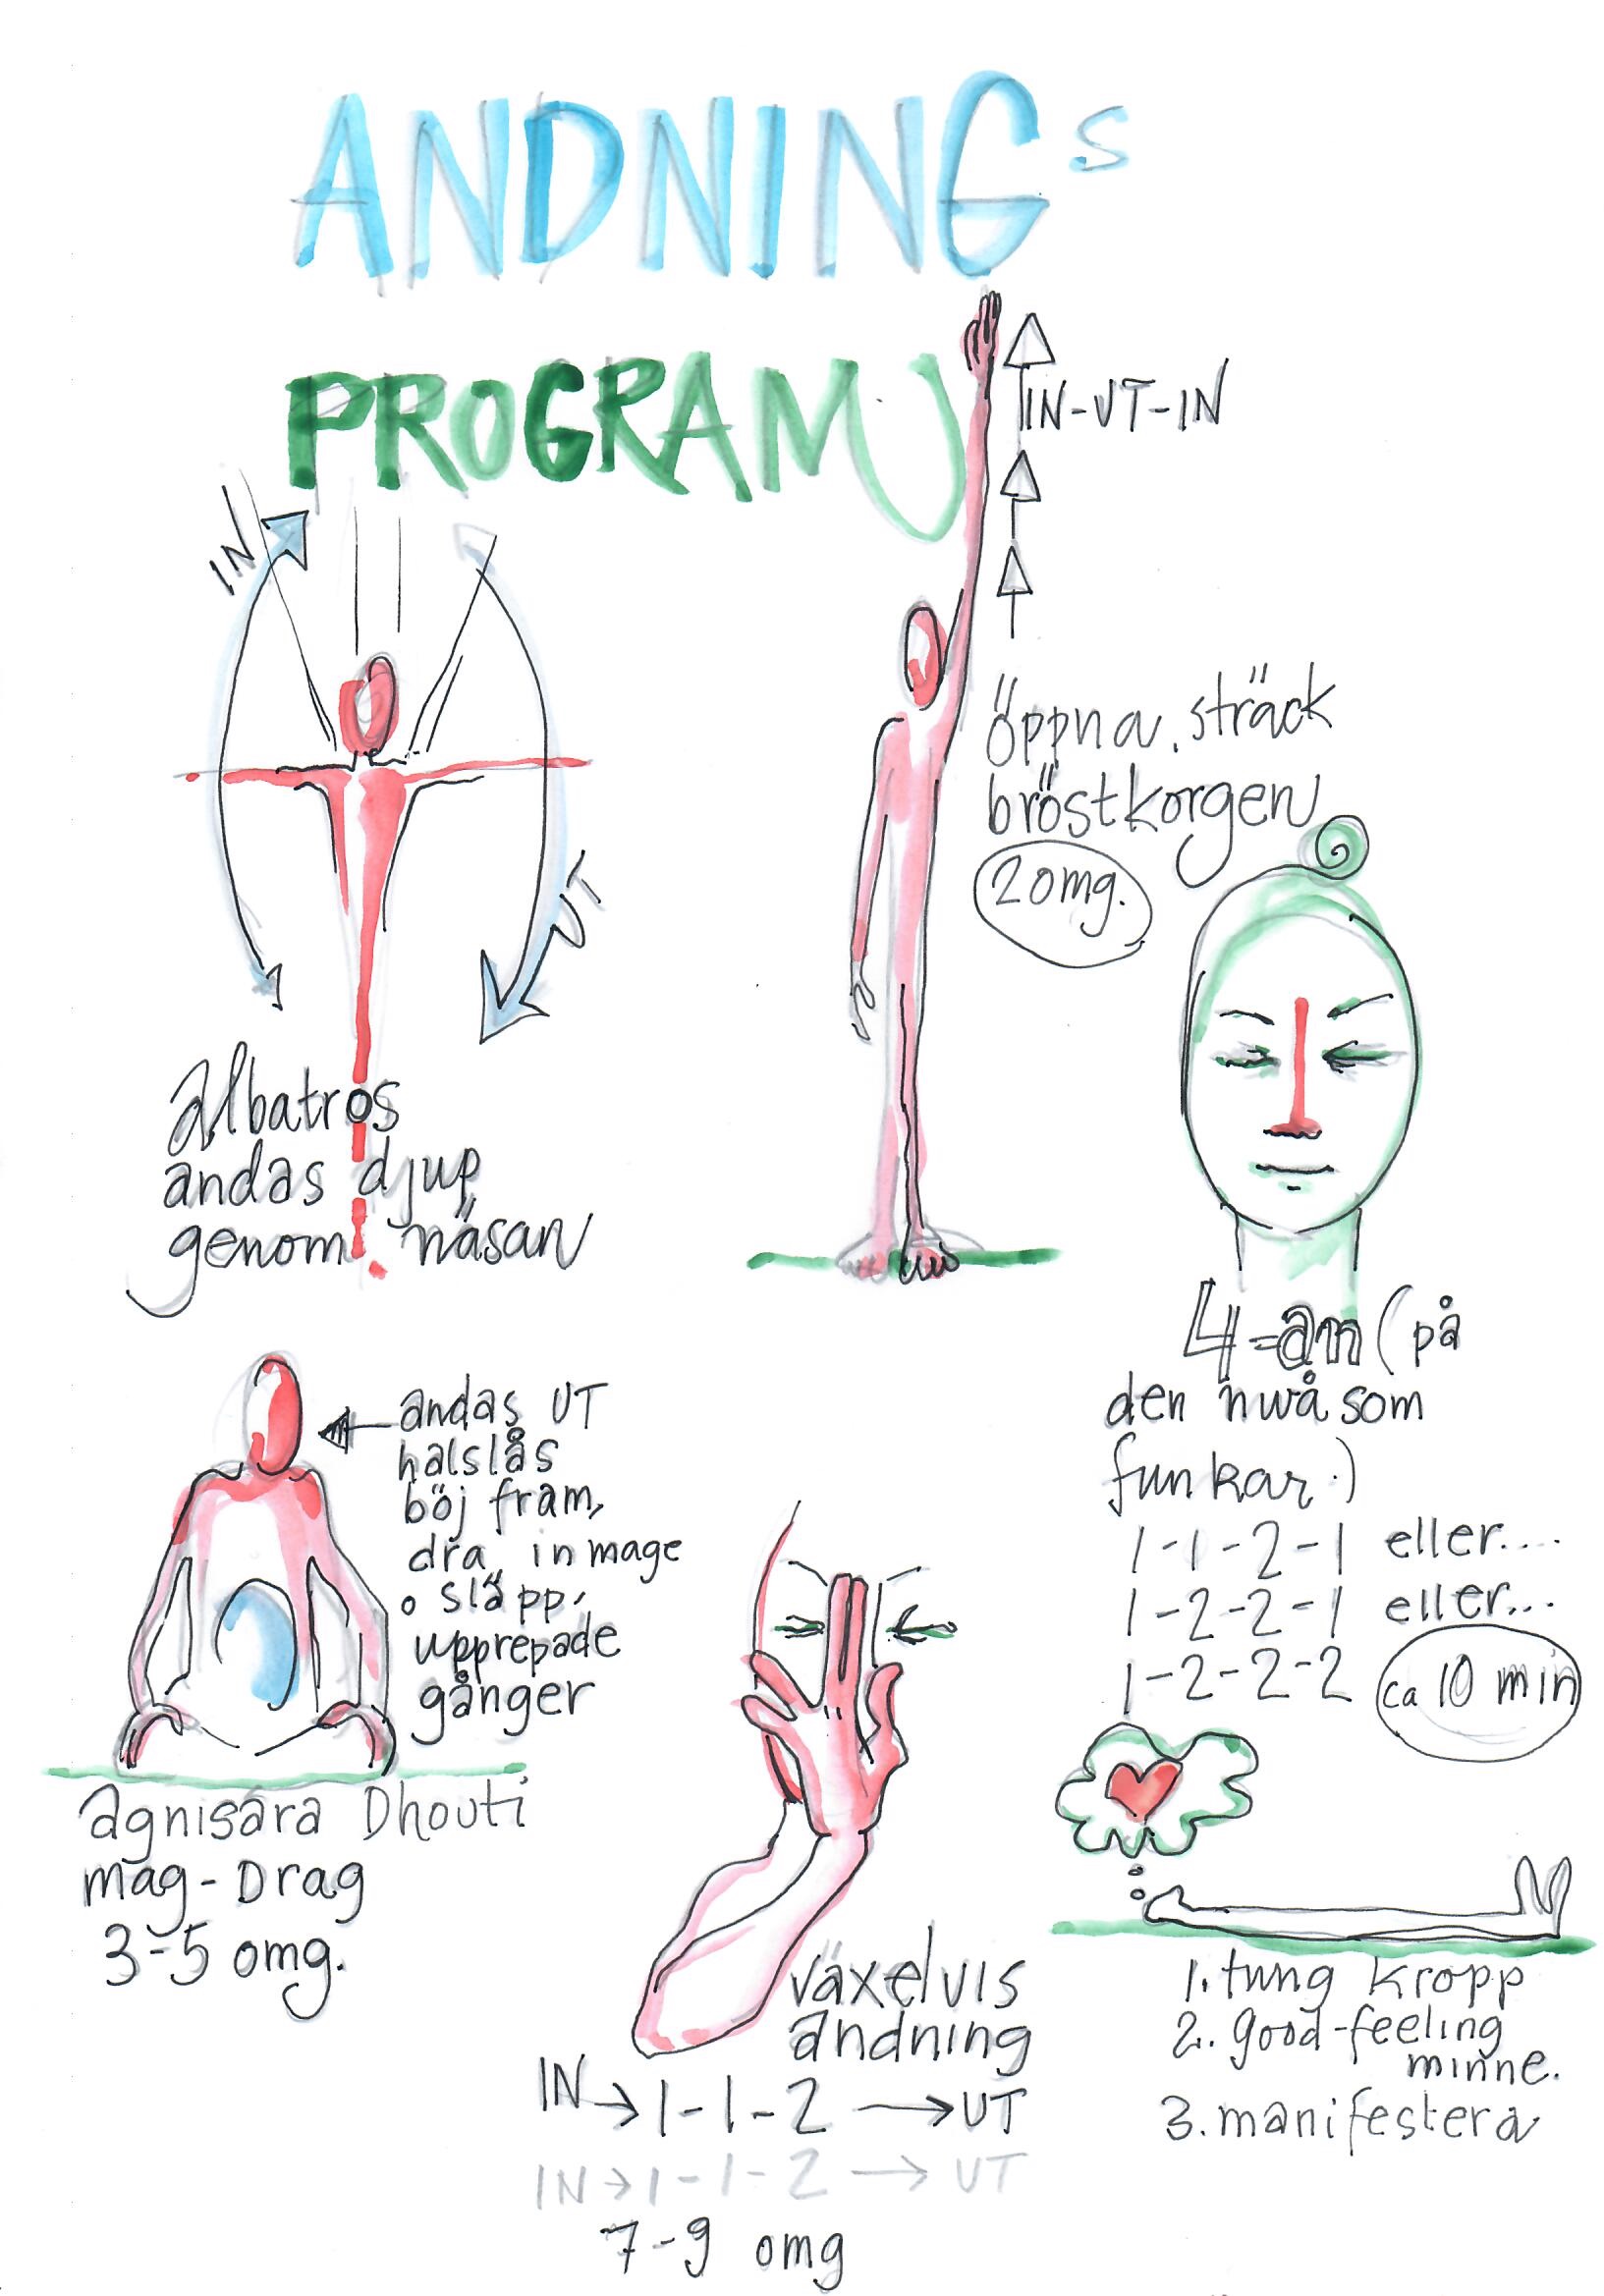 ANDNINGS
PROGRAM
IN
UT
albatros
andas djup
genom näsan
IN-UT-IN
öppna, sträck
bröstkorgen
2omg.
4=an (på
den nivå som
funkar.)
1-1-2-1 eller....
1-2-2-1 eller...
1-2-2-2
ca 10 min
andas UT
halslås
böj fram,
dra in mage
o släpp,
upprepade
gånger
agnisara Dhouti
mag-Drag
3-5 omg.
växelvis
andning
IN→1-1-2→UT
IN→1-1-2→UT
7-9 omg
1. tung kropp
2. good-feeling
minne.
3. manifestera